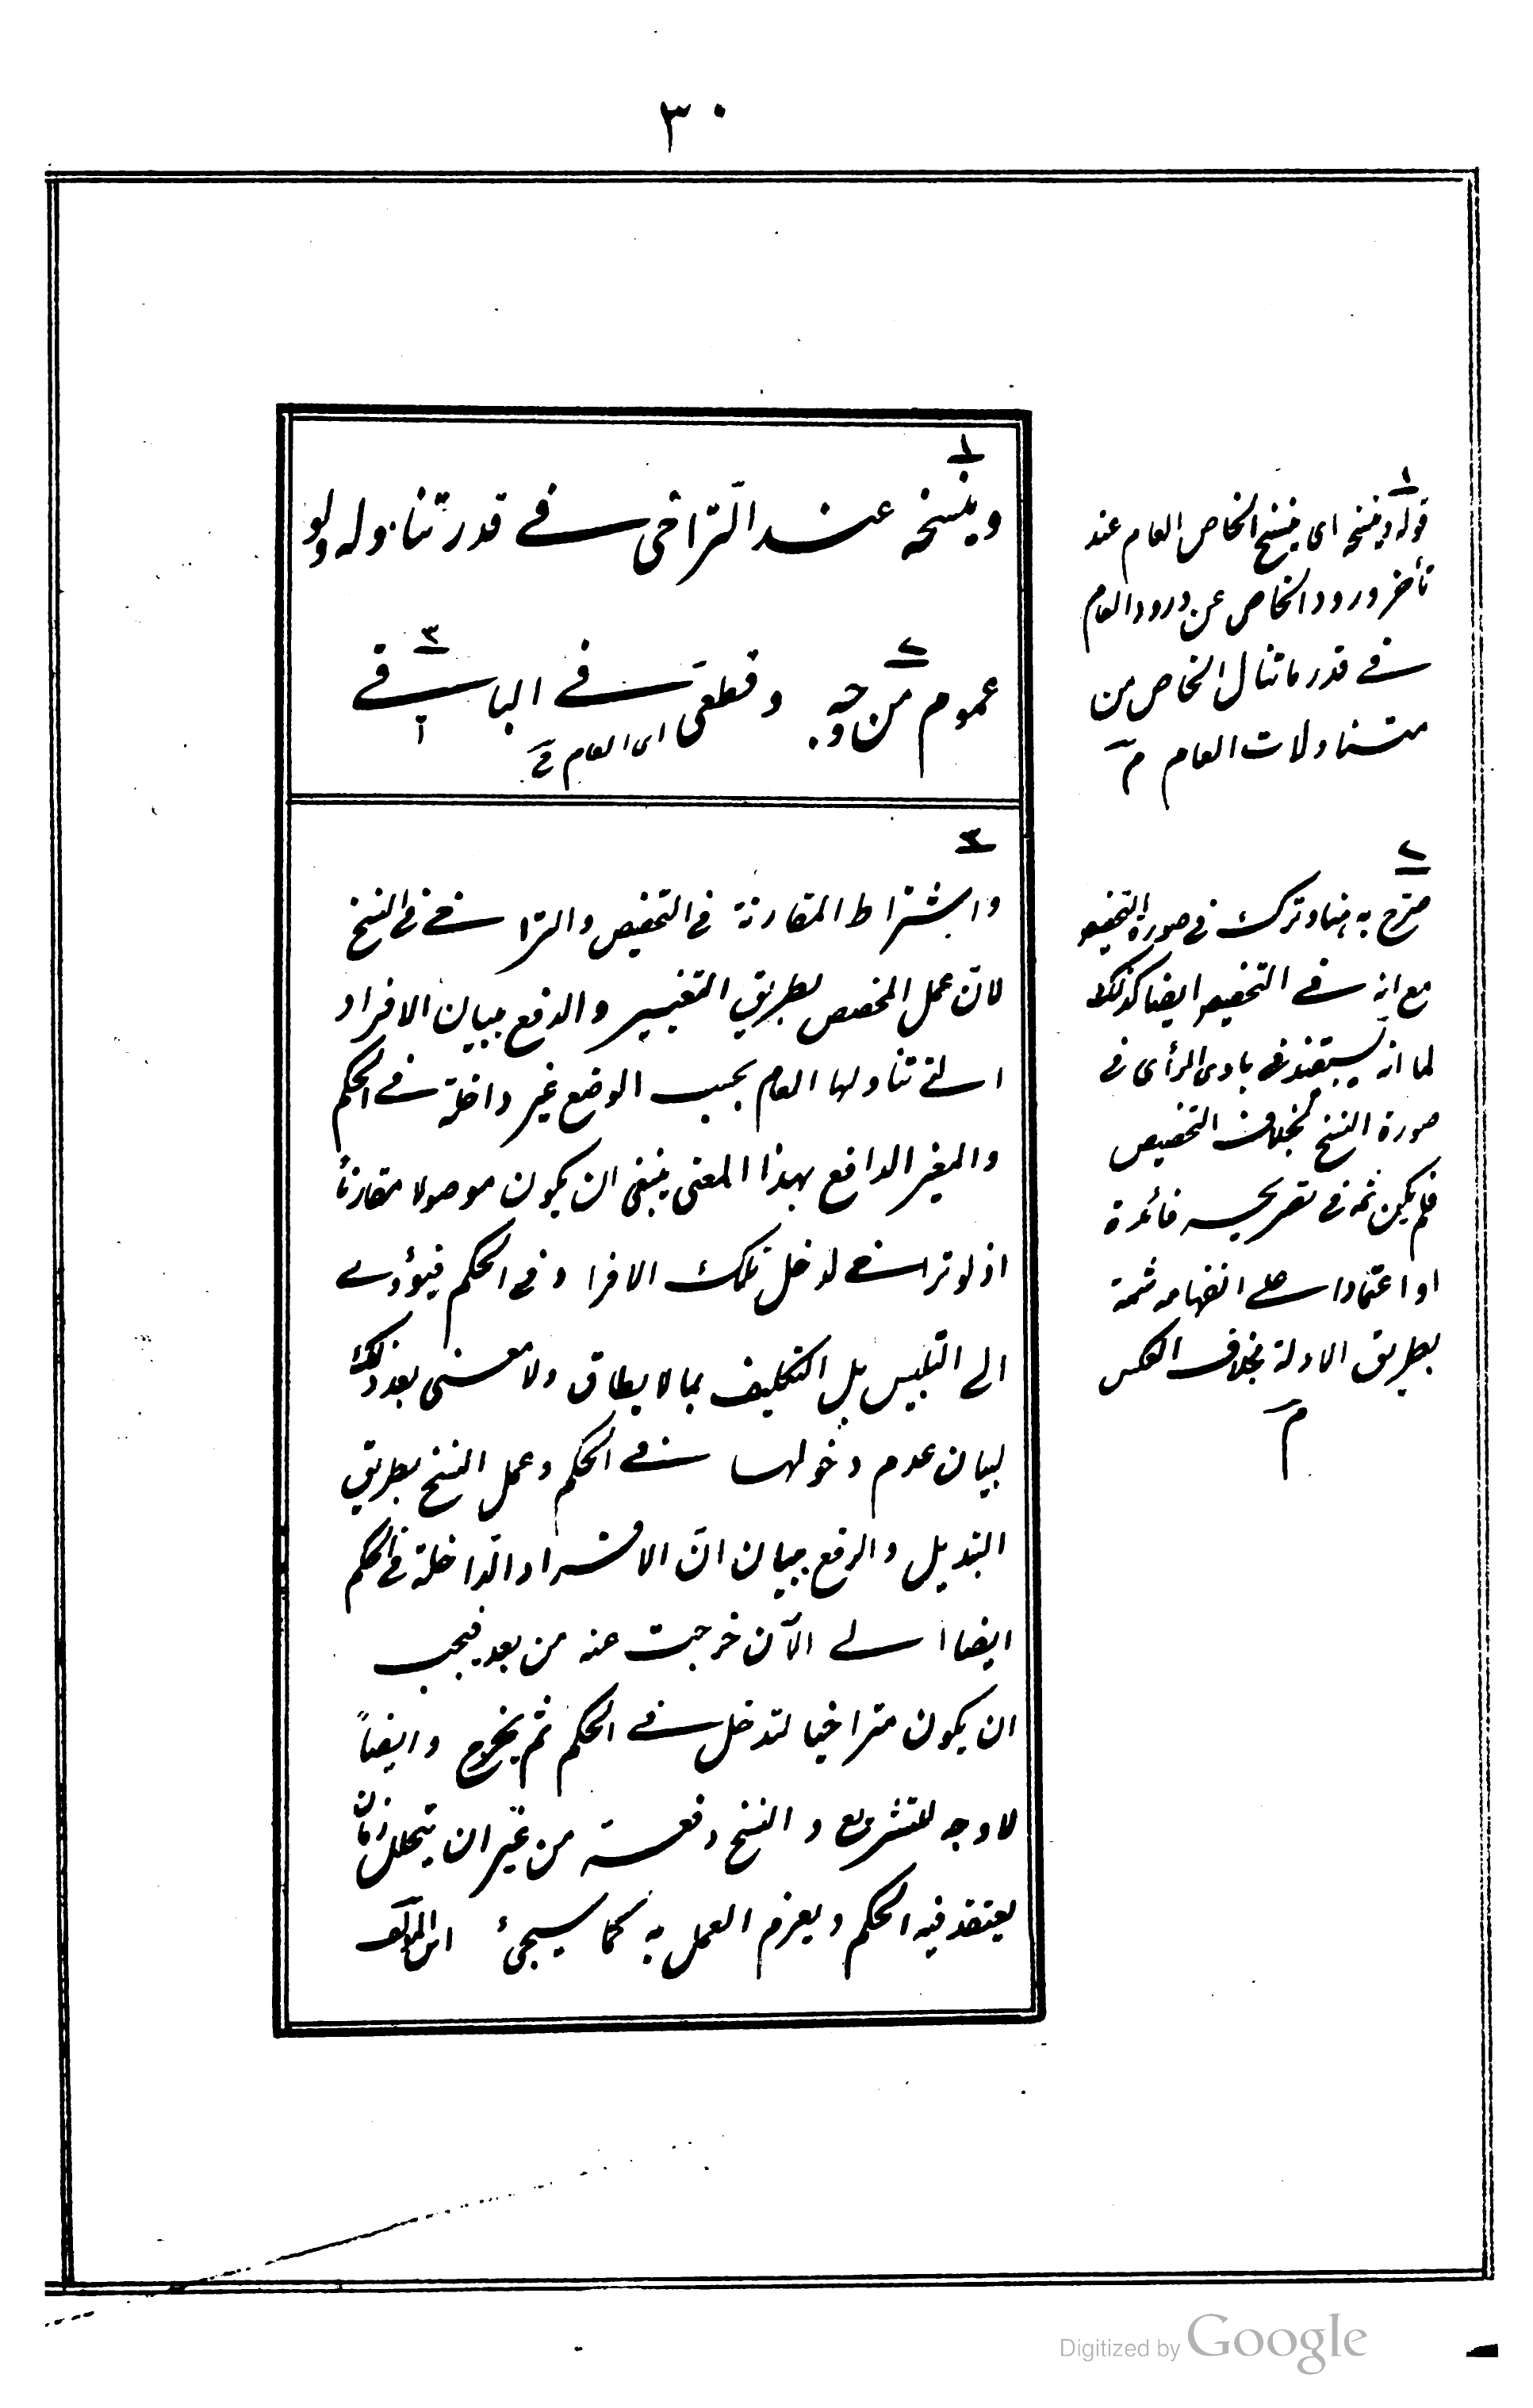 ٣٠
١
وينسخه عند التّراخى فے قدر تناوله ولو
٢ ٣
عموم من وجه وقطعىّ فے الباقے
اى العام
٣
واشتراط المقارنة فى التخصيص والتراخے فى النسخ
لانّ عمل المخصص بطريق التغيير والدفع ببيان الافراد
التے تناولها العام بحسب الوضع غير داخلة فے الحكم
والمغير الدافع بهذا المعنى ينبغى ان يكون موصولا مقارناً
اذ لو تراخے لدخل تلك الافراد فى الحكم فيؤدے
الى التلبيس بل التكليف بما لا يطاق ولا معنى بعد ذلك
لبيان عدم دخولها فے الحكم وعمل النسخ بطريق
التبديل والرفع ببيان انّ الافراد الدّاخلة فى الحكم
ايضا الے الآن خرجت عنه من بعد فيجب
ان يكون متراخيا لتدخل فے الحكم ثم يخرج وايضاً
لا وجه للتشريع والنسخ دفعة من غير ان يتخلل زمان
يعتقد فيه الحكم ويعزم العمل به كما سيجىء
١
قوله وينسخه اى ينسخ الخاص العام عند
تأخر ورود الخاص عن ورود العام
فے قدر ما تنال الخاص من
متناولات العام م
٢
صرّح به هنا وترك فى صورة التخصيص
مع انه فے التخصيص ايضا كذلك
لما انه يستبعد فى بادى الرأى فى
صورة النسخ بخلاف التخصيص
فلم يكن ثمه فى تصريحه فائدة
او اعتمادا علے انفهامه ثمة
بطريق الاولة بخلاف العكس
م
Digitized by Google